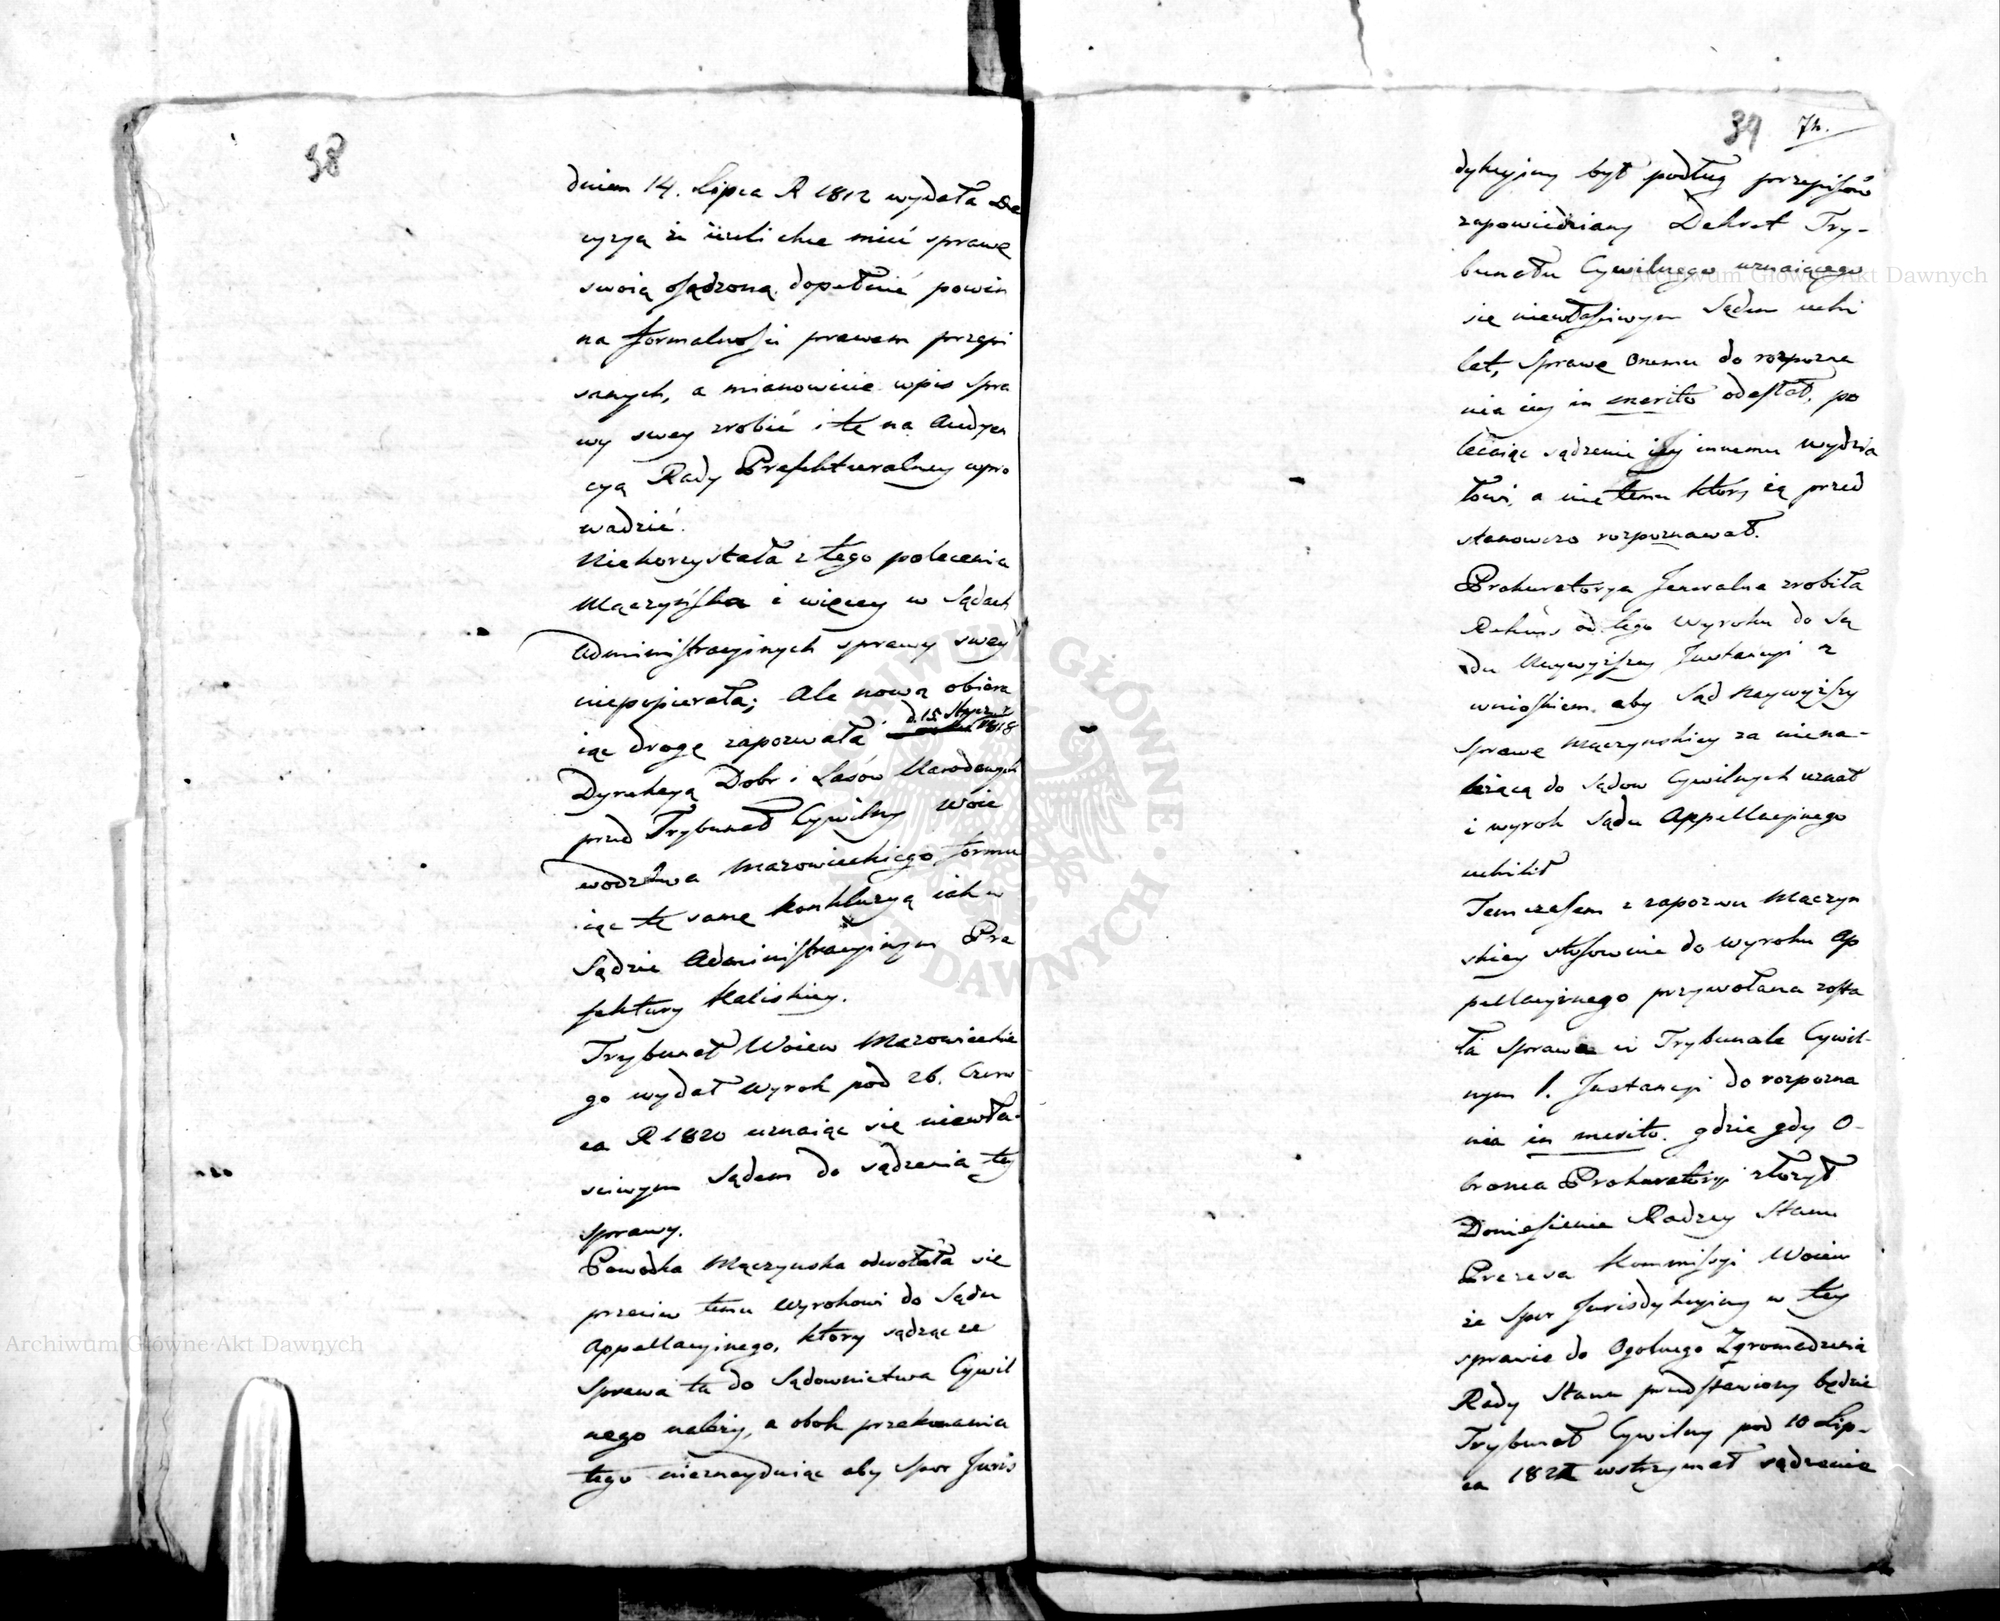 38
dniem 14. Lipca R 1812 wydała De
cyzyą że ieżeli chce mieć sprawę
swoią osądzoną dopełnić powin
na formalności prawem przepi
sanych, a mianowicie wpis spra
wy swey zrobić i tę na Audyen
cyą Rady Prefekturalney wpro
wadzić.
Niekorzystała z tego polecenia
Mączyńska i więcey w Sądach
Administracyinych sprawy swey
niepopierała; Ale nową obiera
iąc drogę zapozwała d. 15 Stycz. r 1818
Dyrekcyą Dobr i Lasów Narodowych
przed Trybunał Cywilny Woie
wodztwa Mazowieckiego, formu
iąc tę samę konkluzyą iak w
Sądzie Administracyinym Pre
fektury Kaliskiey.
Trybunał Woiew Mazowieckie
go wydał wyrok pod 26. Czerw
ca R 1820 uznaiąc się niewła-
sciwym Sądem do sądzenia tey
sprawy.
Powodka Mączynska odwołała się
przeciw temu wyrokowi do Sądu
Appellacyinego, ktory sądząc że
sprawa ta do Sądownictwa Cywil
nego należy, a obok przekonania
tego nieznayduiąc aby spor Juris
39 74.
dykcyiny był podług przepisów
zapowiedziany Dekret Try-
bunału Cywilnego uznaiącego
się niewłaściwym Sądem uchi
lił, sprawę onemu do rozpozna
nia iey in merito odesłał, po
lecaiąc sądzenie iey innemu Wydzia
łowi, a nie temu ktory ią przed
stanowczo rozpoznawał.
Prokuratorya Jeneralna zrobiła
Rekurs od tego Wyroku do Są
du Naywyższey Instancyi z
wnioskiem aby Sąd Naywyższy
Sprawę Mączynskiey za niena-
leżącą do Sądow Cywilnych uznał
i wyrok Sądu Appellacyinego
uchilił
Tem czasem z zapozwu Mączyn
skiey stosownie do wyroku Ap
pellacyinego przywołana zosta
ła sprawa w Trybunale Cywil-
nym 1. Instancyi do rozpozna
nia in merito. gdzie gdy O-
bronca Prokuratoryi złożył
Doniesienie Radzcy Stanu
Prezesa Kommissyi Woiew
że Spor Jurisdykcyiny w tey
sprawie do Ogolnego Zgromadzenia
Rady Stanu przedstawiony będzie
Trybunał Cywilny pod 10 Lip-
ca 1821 wstrzymał sądzenie
Archiwum Główne Akt Dawnych
Archiwum Główne Akt Dawnych
ARCHIWUM GŁÓWNE AKT DAWNYCH